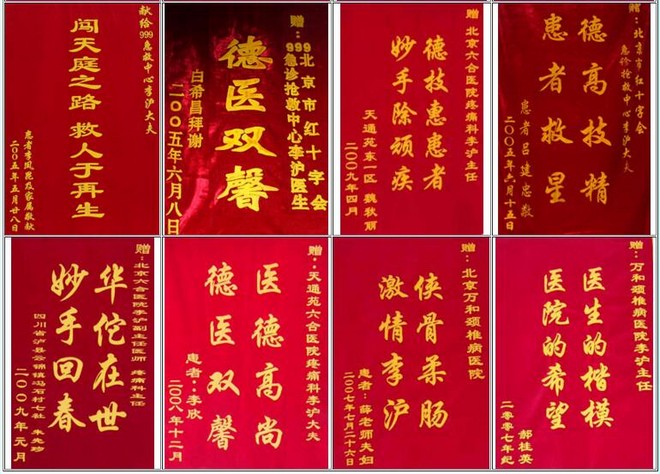 献给999急救中心李沪大夫
闯天庭之路 救人于再生
二00五年五月廿八日
赠:北京市红十字会
999急诊抢救中心李沪医生
德医双馨
白希昌拜谢
二00五年六月八日
赠:北京六合医院疼痛科李沪主任
德技惠患者
妙手除顽疾
天通苑东一区 魏秋丽
二00九年四月
赠:北京市红十字会
急诊抢救中心李沪大夫
德高技精
患者救星
患者吕建忠敬
二00五年六月十五日
赠:北京六合医院李沪副主任医师 疼痛科主任
华佗在世
妙手回春
四川省泸县云锦镇冯石村七社
二00九年元月
赠:天通苑六合医院疼痛科李沪大夫
医德高尚
德医双馨
患者:李欣
二00八年十二月
赠:北京万和颈椎病医院
侠骨柔肠
激情李沪
患者:薛老师夫妇
二00七年七月二十六日
赠:万和颈椎病医院李沪主任
医生的楷模
医院的希望
郝桂英
二零零七年纪